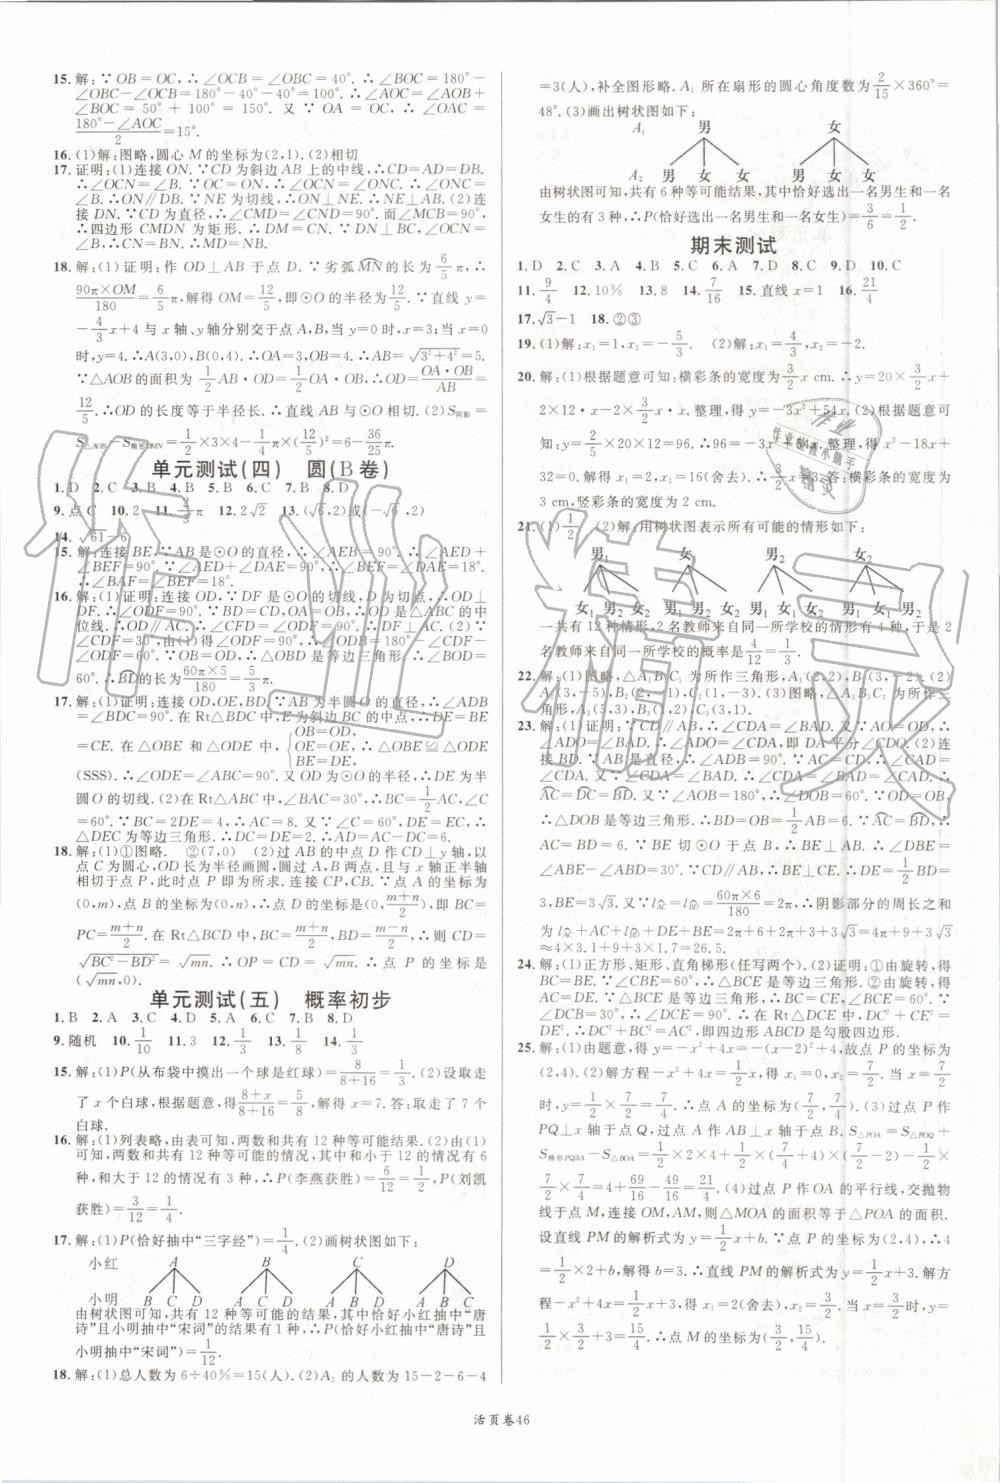 15. 解:∵OB=OC,∴∠OCB=∠OBC=40°.∴∠BOC=180°-
∠OBC-∠OCB=180°-40°-40°=100°.∴∠AOC=∠AOB+
∠BOC=50°+100°=150°. 又∵OA=OC,∴∠OAC=
(180°-∠AOC)/2=15°.
16. (1)解:图略,圆心 M 的坐标为(2,1). (2)相切
17. 证明:(1)连接 ON.∵CD 为斜边 AB 上的中线,∴CD=AD=DB.
∴∠OCN=∠B. ∵OC=ON,∴∠OCN=∠ONC. ∴∠ONC=
∠B. ∴ON∥DB. ∵NE 为切线,∴ON⊥NE. ∴NE⊥AB. (2)连
接 DN.∵CD 为直径,∴∠CMD=∠CND=90°. 而∠MCB=90°,
∴四边形 CMDN 为矩形. ∴DM=CN. ∵DN⊥BC,∠B=
∠OCN,∴CN=BN.∴MD=NB.
18. 解:(1)证明:作 OD⊥AB 于点 D. ∵劣弧MN的长为6/5π,∴
90π×OM/180=6/5π,解得 OM=12/5,即⊙O 的半径为12/5. ∵直线 y=-
4/3x+4 与 x 轴、y 轴分别交于点 A,B,当 y=0 时,x=3;当 x=0
时,y=4.∴A(3,0),B(0,4).∴OA=3,OB=4.∴AB=√(3²+4²)=5.
∵△AOB 的面积为1/2AB·OD=1/2OA·OB,∴OD=OA·OB/AB=
12/5.∴OD 的长度等于半径长.∴直线 AB 与⊙O 相切. (2)S阴影=
S△AOB-S扇形OMN=1/2×3×4-1/4π×(12/5)²=6-36/25π.
单元测试(四) 圆(B卷)
1. D 2. C 3. C 4. B 5. B 6. C 7. B 8. D
9. 点 C 10. 2 11. 2/3π 12. 2√2 13. (√6,2)或(-√6,2)
14. √61-6
15. 解:连接 BE.∵AB 是⊙O 的直径,∴∠AEB=90°.∴∠AED+
∠BEF=90°. ∵∠AED=72°,∴∠BEF=18°.
∴∠BAF=∠BEF=18°.
16. 解:(1)证明:连接 OD,∵DF 是⊙O 的切线,D 为切点,∴OD⊥
DF.∴∠ODF=90°. ∵BD=CD,OA=OB,∴OD 是△ABC 的中
位线.∴OD∥AC.∴∠CFD=∠ODF=90°.∴DF⊥AC. (2)∵
∠CDF=30°,由(1)得∠ODF=90°,∴∠ODB=180°-∠CDF-
∠ODF=60°. ∵OB=OD,∴△OBD 是等边三角形.∴∠BOD=
60°.∴BD的长为60π×5/180=5π/3.
17. 解:(1)证明:连接 OD,OE,BD,∵AB 为半圆 O 的直径,∴∠ADB
=∠BDC=90°. 在 Rt△BDC 中,E 为斜边 BC 的中点,∴DE=BE
=CE. 在△OBE 和△ODE 中,{OB=OD, OE=OE, BE=DE, ∴△OBE≌△ODE
(SSS).∴∠ODE=∠ABC=90°. 又 OD 为⊙O 的半径,∴DE 为半
圆 O 的切线. (2)在 Rt△ABC 中,∠BAC=30°,∴BC=1/2AC,∠C=
60°. ∵BC=2DE=4,∴AC=8. 又∵∠C=60°,DE=EC,∴
△DEC 为等边三角形.∴DC=DE=2.∴AD=AC-DC=6.
18. 解:(1)①图略. ②(7,0) (2)过 AB 的中点 D 作 CD⊥y 轴,以
点 C 为圆心,OD 长为半径画圆,圆过 A,B 两点,且与 x 轴正半轴
相切于点 P,此时点 P 即为所求. 连接 CP,CB. ∵点 A 的坐标为
(0,m),点 B 的坐标为(0,n),∴点 D 的坐标是(0,(m+n)/2),即 BC=
PC=(m+n)/2. 在 Rt△BCD 中,BC=(m+n)/2,BD=(m-n)/2,则 CD=
√(BC²-BD²)=√mn. ∴OP=CD=√mn. ∴点 P 的坐标是
(√mn,0).
单元测试(五) 概率初步
1. B 2. A 3. C 4. D 5. A 6. C 7. B 8. D
9. 随机 10. 1/10 11. 3 12. 1/3 13. 1/8 14. 1/3
15. 解:(1)P(从布袋中摸出一个球是红球)=8/(8+16)=1/3. (2)设取走
了 x 个白球,根据题意,得(8+x)/(8+16)=5/8,解得 x=7. 答:取走了 7 个
白球.
16. 解:(1)列表略,由表可知,两数和共有 12 种等可能结果. (2)由(1)
可知,两数和共有 12 种等可能的情况,其中和小于 12 的情况有 6
种,和大于 12 的情况有 3 种,∴P(李燕获胜)=6/12=1/2,P(刘凯
获胜)=3/12=1/4.
17. 解:(1)P(恰好抽中“三字经”)=1/4. (2)画树状图如下:
小红 A B C D
小明 B C D A C D A B D A B C
由树状图可知,共有 12 种等可能的结果,其中恰好小红抽中“唐
诗”且小明抽中“宋词”的结果有 1 种,∴P(恰好小红抽中“唐诗”且
小明抽中“宋词”)=1/12.
18. 解:(1)总人数为 6÷40%=15(人). (2)A₂ 的人数为 15-2-6-4
=3(人),补全图形略. A₁ 所在扇形的圆心角度数为2/15×360°=
48°. (3)画出树状图如下:
A₁ 男 女
A₂ 男 女 女 男 女 女
由树状图可知,共有 6 种等可能结果,其中恰好选出一名男生和一名
女生的有 3 种,∴P(恰好选出一名男生和一名女生)=3/6=1/2.
期末测试
1. D 2. C 3. A 4. B 5. C 6. A 7. D 8. C 9. D 10. C
11. 9/4 12. 10% 13. 8 14. 7/16 15. 直线 x=1 16. 21/4
17. √3-1 18. ②③
19. (1)解:x₁=1,x₂=-5/3. (2)解:x₁=1/3,x₂=-2.
20. 解:(1)根据题意可知:横彩条的宽度为3/2x cm.∴y=20×3/2x
+2×12·x-2×3/2x·x. 整理,得 y=-3x²+54x. (2)根据题意可
知:y=2/5×20×12=96.∴96=-3x²+54x,整理,得 x²-18x+
32=0,解得 x₁=2,x₂=16(舍去).∴3/2x=3. 答:横彩条的宽度为
3 cm,竖彩条的宽度为 2 cm.
21. (1)1/2 (2)解:用树状图表示所有可能的情形如下:
男₁ 女₁ 男₂ 女₂
女₁ 男₂ 女₂ 男₁ 男₂ 女₂ 男₁ 女₁ 女₂ 男₁ 女₁ 男₂
一共有 12 种情形,2 名教师来自同一所学校的情形有 4 种,于是 2
名教师来自同一所学校的概率是4/12=1/3.
22. 解:(1)图略,△A₁B₁C₁ 为所作三角形,A₁(2,2),B₁(3,-2). (2)
A₂(3,-5),B₂(2,-1),C₂(1,-3). (3)图略,△A₃B₃C₃ 为所作三
角形,A₃(5,3),B₃(1,2),C₃(3,1).
23. 解:(1)证明:∵CD∥AB,∴∠CDA=∠BAD. 又∵AO=OD,∴
∠ADO=∠BAD.∴∠ADO=∠CDA,即 DA 平分∠CDO. (2)连
接 BD. ∵AB 是直径,∴∠ADB=90°. ∵AC=CD,∴∠CAD=
∠CDA. 又∵CD∥AB,∴∠CDA=∠BAD. ∴∠CAD=∠BAD. ∴
AC=DC=BD. 又∵∠AOB=180°,∴∠DOB=60°. ∵OD=OB,
∴△DOB 是等边三角形. ∴BD=OB=1/2AB=6. ∵AC=BD,∴
AC=BD=6. ∵BE 切⊙O 于点 B,∴BE⊥AB. ∴∠DBE=
∠ABE-∠ABD=30°. ∵CD∥AB,∴BE⊥CE. ∴DE=1/2BD=
3,BE=3√3. 又∵l=60π×6/180=2π,∴阴影部分的周长之和
为 l+l+AD+DE+BE=2π+6+2π+3+3√3=4π+9+3√3
≈4×3.1+9+3×1.7=26.5.
24. 解:(1)正方形、矩形、直角梯形(任写两个). (2)证明:①由旋转,得
BC=BE. ∵∠CBE=60°,∴△BCE 是等边三角形. ②由旋转,得
AC=DE. ∵△BCE 为等边三角形,∴BC=CE,∠BCE=60°. ∵
∠DCB=30°,∴∠DCE=90°. 在 Rt△DCE 中,DC²+CE²=
DE²,∴DC²+BC²=AC²,即四边形 ABCD 是勾股四边形.
25. 解:(1)由题意,得 y=-x²+4x=-(x-2)²+4,故点 P 的坐标为
(2,4). (2)解方程-x²+4x=1/2x,得 x₁=0(舍去),x₂=7/2. 当 x=7/2
时,y=1/2x=1/2×7/2=7/4,∴点 A 的坐标为(7/2,7/4). (3)过点 P 作
PQ⊥x 轴于点 Q,过点 A 作 AB⊥x 轴于点 B. S△POA=S△POQ+
S梯形PQBA-S△BOA=1/2×2×4+1/2×(7/4+4)×(7/2-2)-1/2×
7/2×7/4=4+69/16-49/16=21/4. (4)过点 P 作 OA 的平行线,交抛物
线于点 M,连接 OM,AM,则△MOA 的面积等于△POA 的面积.
设直线 PM 的解析式为 y=1/2x+b. ∵点 P 的坐标为(2,4),∴4=
1/2×2+b,解得 b=3. ∴直线 PM 的解析式为 y=1/2x+3. 解方
程-x²+4x=1/2x+3,得 x₁=2(舍去),x₂=3/2. 当 x=3/2时,y=
1/2×3/2+3=15/4,∴点 M 的坐标为(3/2,15/4).
活页卷46